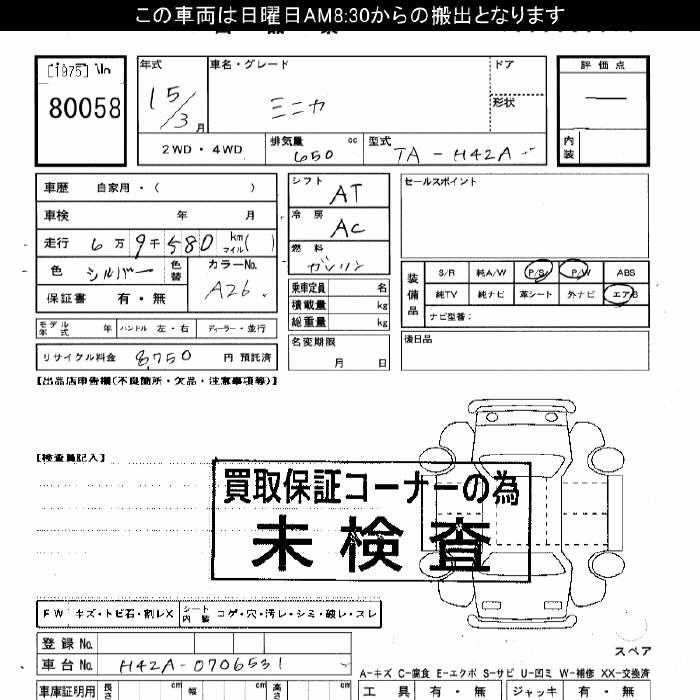 この車両は日曜日AM8:30からの搬出となります
[1975] \ln
80058
年式 15/3月
車名・グレード ミニカ
ドア
形状
評価点 —
内装
2WD・4WD
排気量 650 cc
型式 TA-H42A
車歴 自家用・( )
車検 年 月
走行 6万9千580 km マイル( )
色 シルバー 色替
カラーNo. A26
保証書 有・無
モデル年式 年 ハンドル 左・右 ディーラー・並行
リサイクル料金 8,750 円 預託済
シフト AT
冷房 AC
燃料 ガソリン
乗車定員 名
積載量 kg
総重量 kg
名変期限
月 日
セールスポイント
装備品
S/R 純A/W P/S P/W ABS
純TV 純ナビ 革シート 外ナビ エアB
ナビ型番:
後日品
【出品店申告欄(不良箇所・欠品・注意事項等)】
【検査員記入】
買取保証コーナーの為
未検査
FW キズ・トビ石・割レX シート内装 コゲ・穴・汚レ・シミ・破レ・スレ
登録No.
車台No. H42A-0706531
スペア
A-キズ C-腐食 E-エクボ S-サビ U-凹ミ W-補修 XX-交換済
車庫証明用 長さ cm 幅 cm 高さ cm
工具 有・無 ジャッキ 有・無